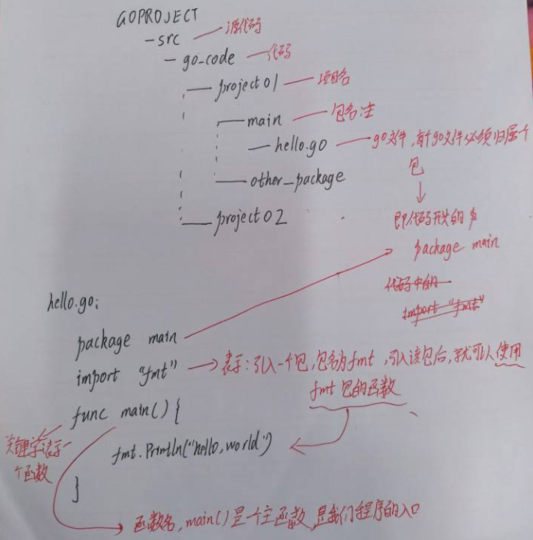 GOPROJECT
-src 源代码
-go-code 代码
project01 项目名
main 包名
hello.go go文件,每个go文件必须归属个
包
other_package
即代码开头的
project02
package main
代码中的
import "fmt"
hello.go:
package main
import "fmt" 表示:引入一个包,包名为fmt,引入该包后,就可以使用
fmt包的函数
func main() {
关键字表示一
个函数
fmt.Println("hello,world")
}
函数名,main()是一个主函数,是我们程序的入口